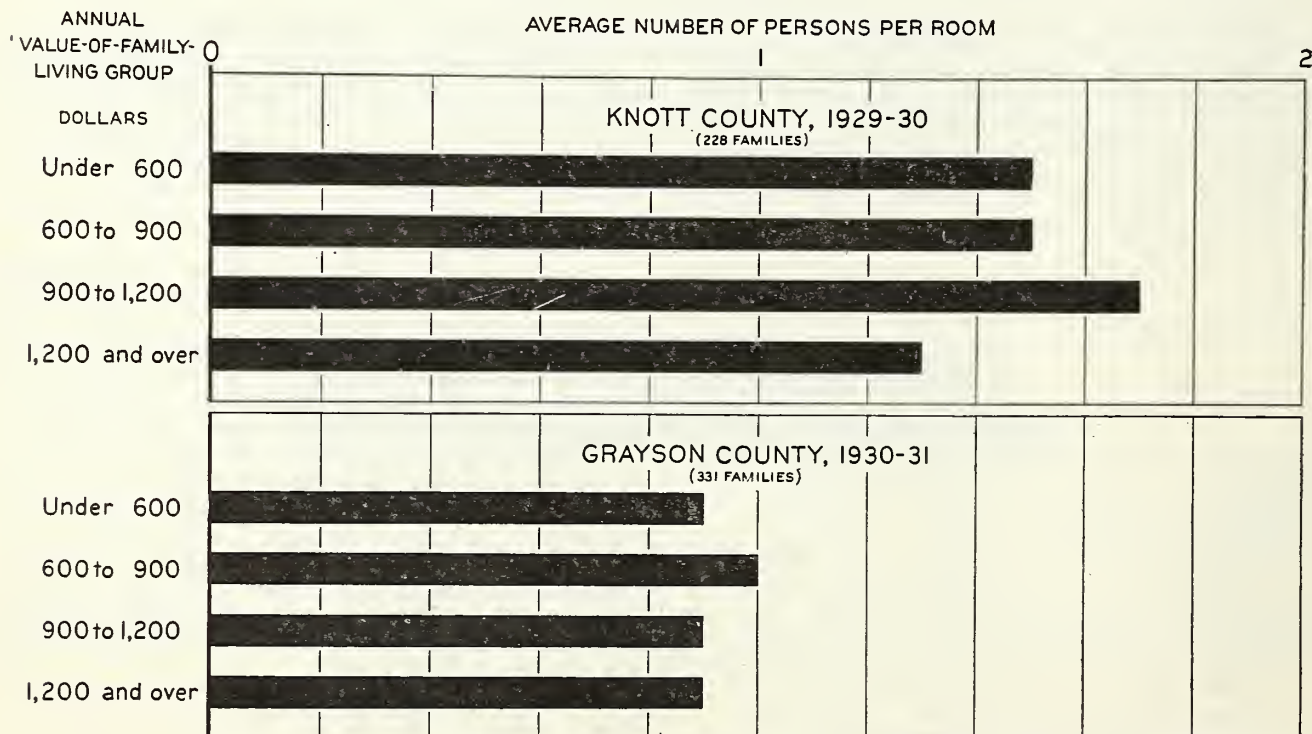 ANNUAL
VALUE-OF-FAMILY-
LIVING GROUP
DOLLARS
AVERAGE NUMBER OF PERSONS PER ROOM
0 1 2
KNOTT COUNTY, 1929-30
(228 FAMILIES)
Under 600
600 to 900
900 to 1,200
1,200 and over
GRAYSON COUNTY, 1930-31
(331 FAMILIES)
Under 600
600 to 900
900 to 1,200
1,200 and over